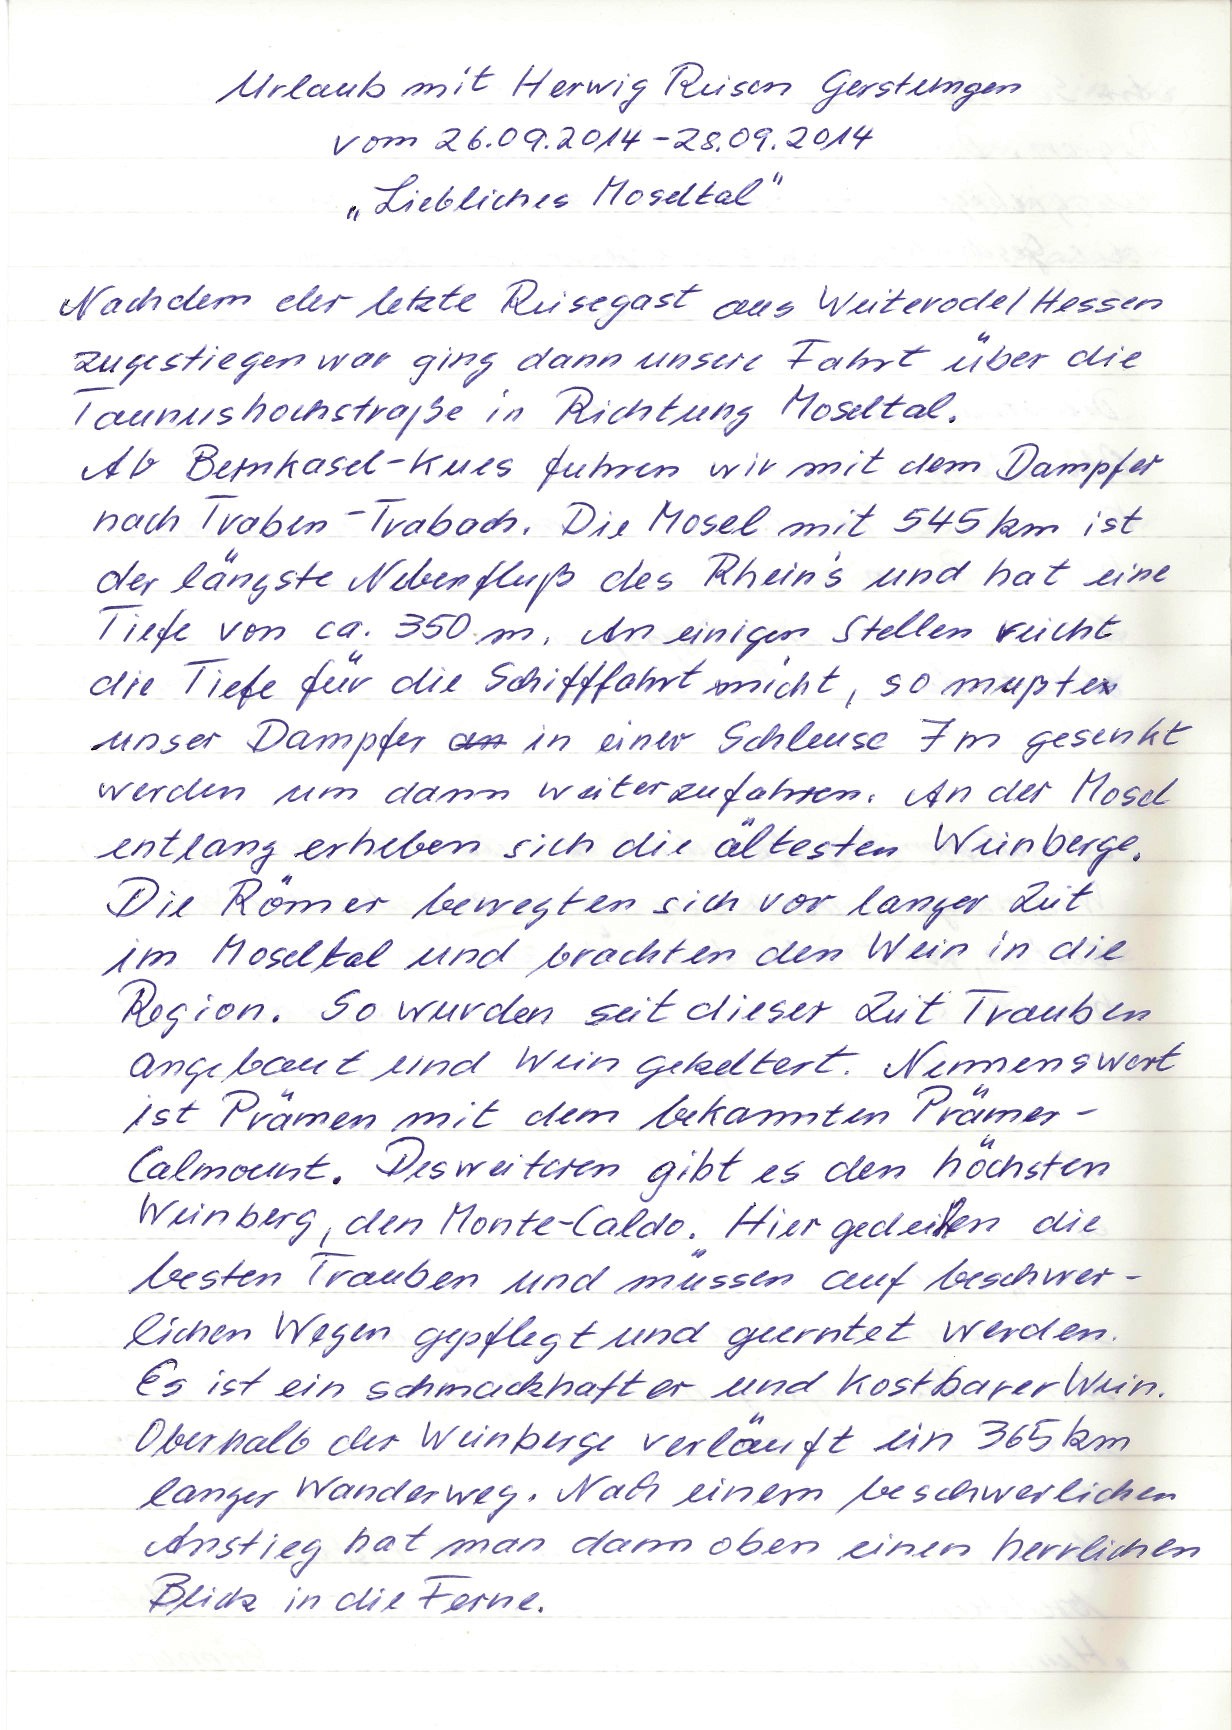 Urlaub mit Herwig Reisen Gerstungen
vom 26.09.2014-28.09.2014
„Liebliches Moseltal"
Nachdem der letzte Reisegast aus Weiterode/Hessen
zugestiegen war ging dann unsere Fahrt über die
Taunushochstraße in Richtung Moseltal.
Ab Bernkasel-Kues fuhren wir mit dem Dampfer
nach Traben-Trabach. Die Mosel mit 545 km ist
der längste Nebenfluß des Rhein's und hat eine
Tiefe von ca. 350 m. An einigen Stellen reicht
die Tiefe für die Schifffahrt nicht, so mußte
unser Dampfer in einer Schleuse 7m gesenkt
werden um dann weiterzufahren. An der Mosel
entlang erheben sich die ältesten Weinberge.
Die Römer bewegten sich vor langer Zeit
im Moseltal und brachten den Wein in die
Region. So wurden seit dieser Zeit Trauben
angebaut und Wein gekeltert. Nennenswert
ist Prämen mit dem bekannten Prämer-
Calmount. Desweiteren gibt es den höchsten
Weinberg, den Monte-Caldo. Hier gedeihen die
besten Trauben und müssen auf beschwer-
lichen Wegen gepflegt und geerntet werden.
Es ist ein schmackhafter und kostbarer Wein.
Oberhalb der Weinberge verläuft ein 365 km
langer Wanderweg. Nach einem beschwerlichen
Anstieg hat man dann oben einen herrlichen
Blick in die Ferne.